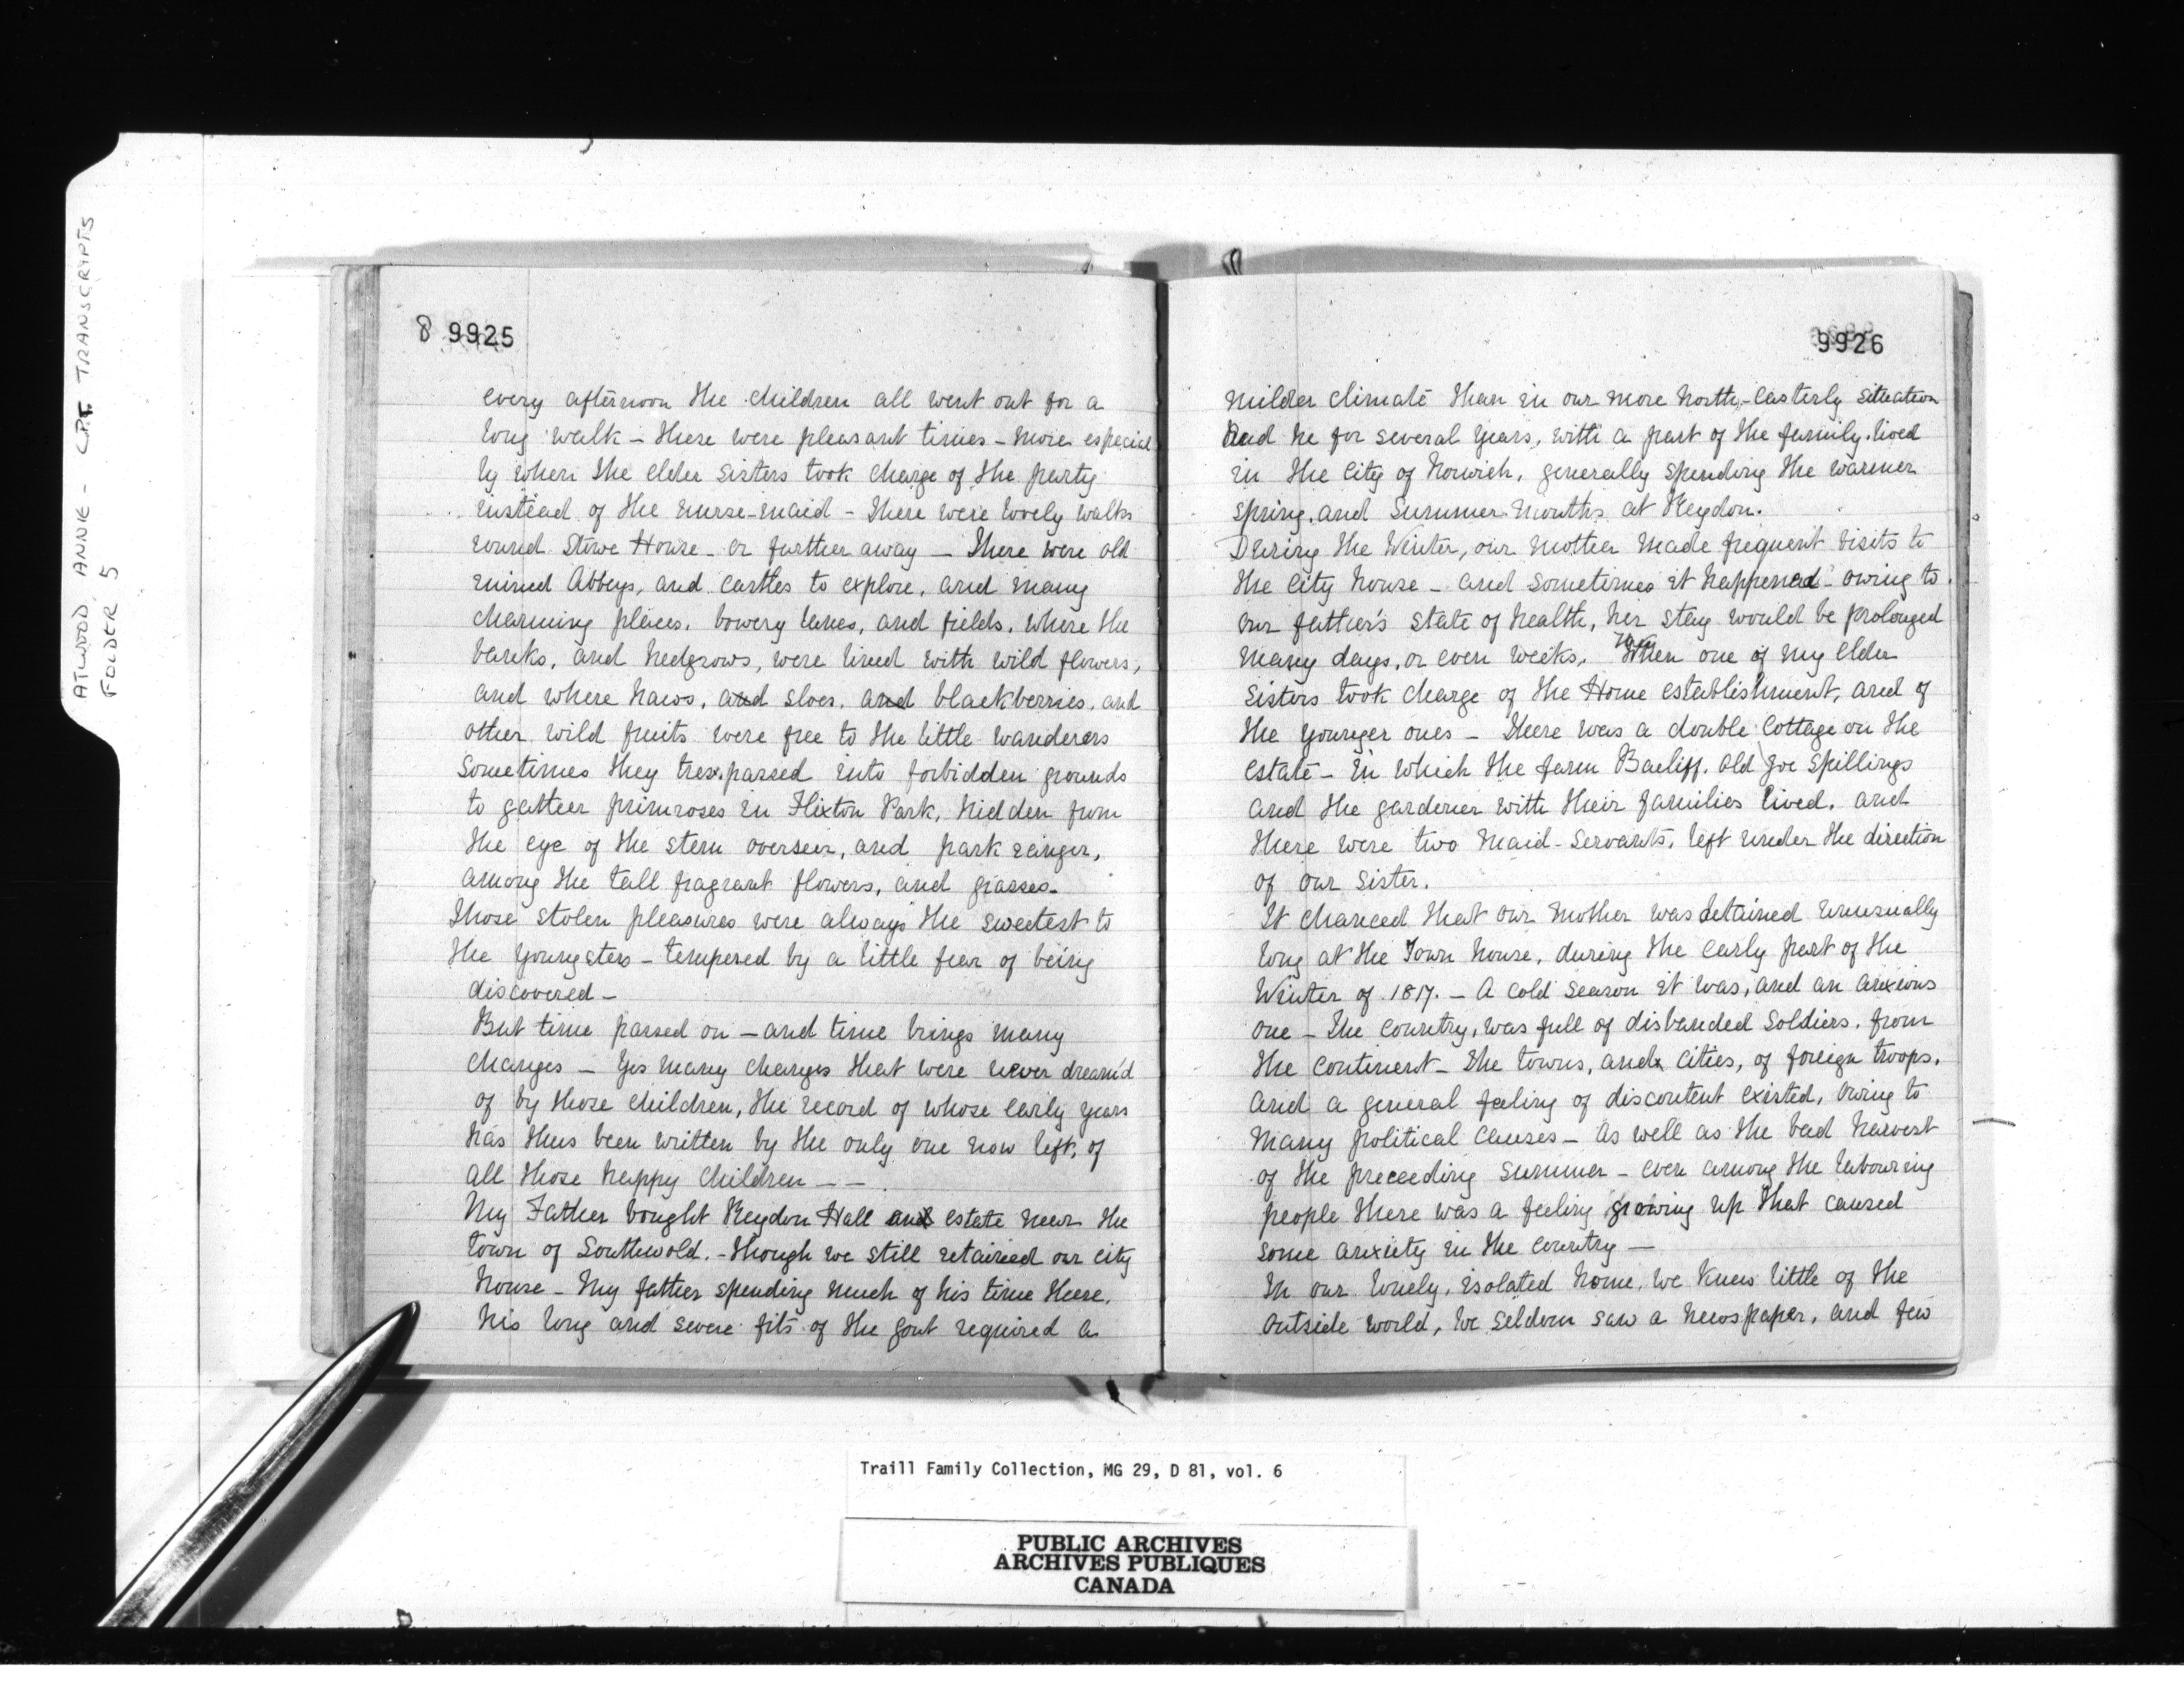 ATWOOD, ANNIE - C.P.T. TRANSCRIPTS
FOLDER 5
8 9925
every afternoon the children all went out for a
long walk – these were pleasant times – more especial
ly when the elder sisters took charge of the party
instead of the nurse-maid – There were lovely walks
round Stowe House – or further away – There were old
ruined Abbeys, and castles to explore, and many
charming places, bowery lanes, and fields, where the
banks, and hedgrows, were lined with wild flowers,
and where haws, and sloes, and blackberries, and
other wild fruits were free to the little wanderers
Sometimes they tresspassed into forbidden grounds
to gather primroses in Flixton Park, hidden from
the eye of the stern overseer, and park ranger,
among the tall fragrant flowers, and grasses.
Those stolen pleasures were always the sweetest to
the youngsters – tempered by a little fear of being
discovered –
But time passed on – and time brings many
changes – Yes many changes that were never dream'd
of by those children, the record of whose early years
has thus been written by the only one now left, of
all those happy children – –
My Father bought Reydon Hall and estate near the
town of Southwold. – though we still retained our city
house – My father spending much of his time there.
his long and severe fits of the gout required a
9926
milder climate than in our more north-easterly situation
And he for several years, with a part of the family lived
in the city of Norwich, generally spending the warmer
spring, and summer months at Reydon.
During the Winter, our mother made frequent visits to
the city house – and sometimes it happened – owing to
our father's state of health, her stay would be prolonged
many days, or even weeks, Then one of my elder
sisters took charge of the Home establishment, and of
the younger ones – There was a double cottage on the
estate – in which the farm Bailiff, old Joe Spillings
and the gardener with their families lived, and
there were two maid-servants, left under the direction
of our sister.
It chanced that our mother was detained unusually
long at the Town house, during the early part of the
Winter of 1817. – A cold season it was, and an anxious
one – The country, was full of disbanded soldiers, from
the continent – The towns, and cities, of foreign troops,
and a general feeling of discontent existed, owing to
many political causes – as well as the bad harvest
of the preceeding summer – even among the labouring
people there was a feeling growing up that caused
some anxiety in the country –
In our lonely, isolated home, we knew little of the
outside world, we seldom saw a newspaper, and few
Traill Family Collection, MG 29, D 81, vol. 6
PUBLIC ARCHIVES
ARCHIVES PUBLIQUES
CANADA